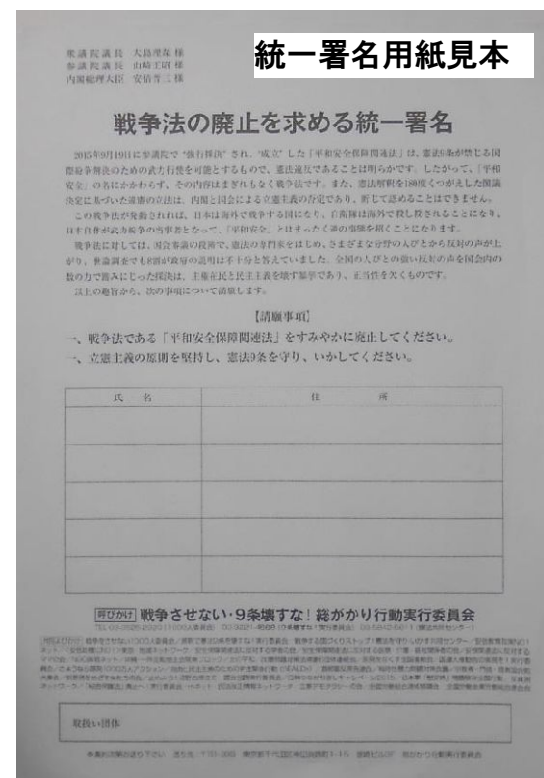 統一署名用紙見本
衆議院議長 大島理森 様
参議院議長 山崎正昭 様
内閣総理大臣 安倍晋三 様
戦争法の廃止を求める統一署名
2015年9月19日に参議院で“強行採決”され、“成立”した「平和安全保障関連法」は、憲法9条が禁じる国
際紛争解決のための武力行使を可能とするもので、憲法違反であることは明らかです。したがって、「平和
安全」の名にかかわらず、その内容はまぎれもなく戦争法です。また、憲法解釈を180度くつがえした閣議
決定に基づいた違憲の立法は、内閣と国会による立憲主義の否定であり、断じて認めることはできません。
この戦争法が発動されれば、日本は海外で戦争する国になり、自衛隊は海外で殺し殺されることになり、
日本自体が武力紛争の当事者となって、「平和安全」とはまったく逆の事態を招くことになります。
戦争法に対しては、国会審議の段階で、憲法の専門家をはじめ、さまざまな分野の人びとから反対の声が上
がり、世論調査でも8割が政府の説明は不十分と答えていました。全国の人びとの強い反対の声を国会内の
数の力で踏みにじった採決は、主権在民と民主主義を壊す暴挙であり、正当性を欠くものです。
以上の趣旨から、次の事項について請願します。
【請願事項】
一、戦争法である「平和安全保障関連法」をすみやかに廃止してください。
一、立憲主義の原則を堅持し、憲法9条を守り、いかしてください。
氏 名 住 所
呼びかけ 戦争させない・9条壊すな！総がかり行動実行委員会
取扱い団体